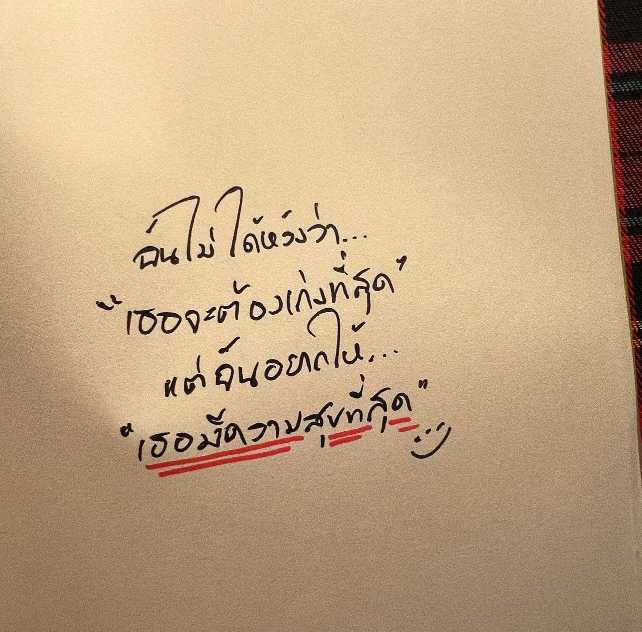 ฉันไม่ได้หวังว่า...
"เธอจะต้องเก่งที่สุด"
แต่ฉันอยากให้...
"เธอมีความสุขที่สุด"